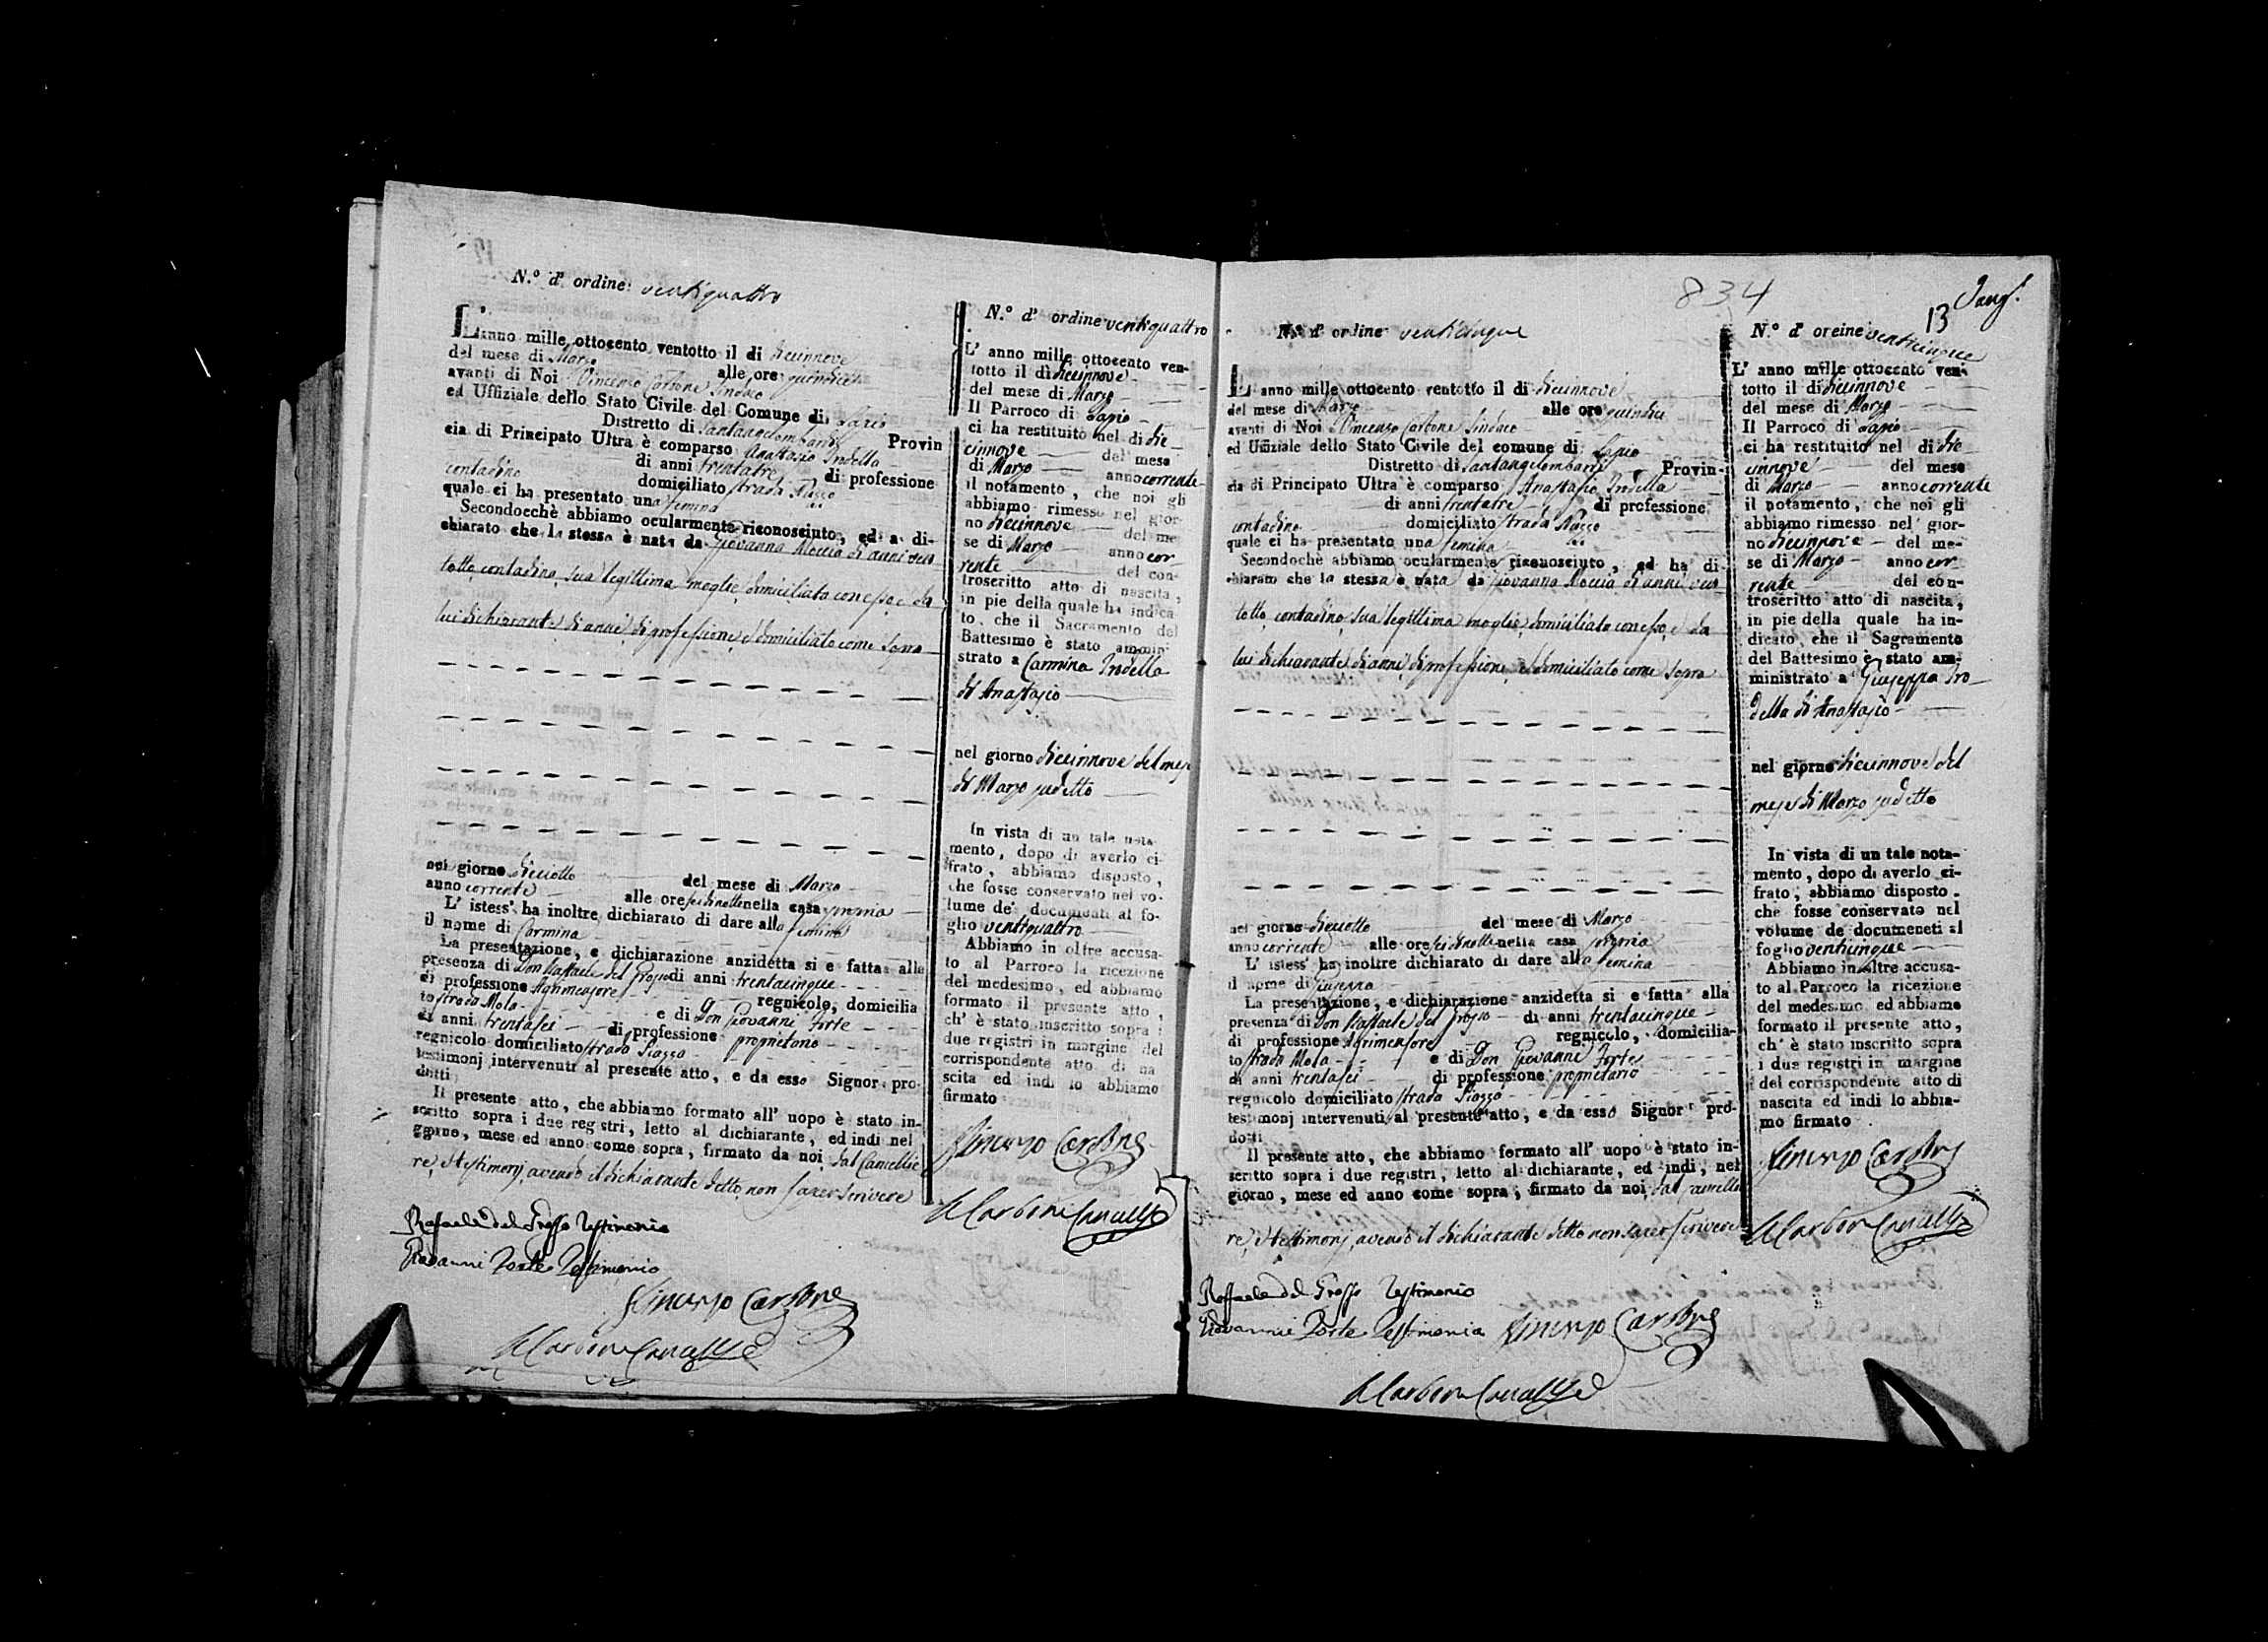 N.º d' ordine ventiquattro
L'anno mille ottocento ventotto il di diecinnove
del mese di Marzo alle ore quindici
avanti di Noi Vincenzo Carbone Sindaco
ed Uffiziale dello Stato Civile del Comune di Lapio
Distretto di Santangelombardi Provin
cia di Principato Ultra è comparso Anastasio Trodella
di anni trentatre di professione
contadino domiciliato strada Piazza
quale ci ha presentato una femina
Secondocchè abbiamo ocularmente riconosciuto, ed a di-
chiarato che la stessa è nata da Giovanna Moccia di anni ven
totto contadina sua legittima moglie domiciliata con esso e da
lui dichiarante di anni di professione e domiciliato come sopra
nel giorno dieciotto del mese di Marzo
anno corrente alle ore sei di notte nella casa propria
L' istess' ha inoltre dichiarato di dare alla femina
il nome di Carmina
La presentazione, e dichiarazione anzidetta si e fatta alla
presenza di Don Raffaele del Grosso di anni trentacinque
di professione Agrimensore regnicolo, domicilia
to strada Mola e di Don Giovanni Forte
di anni trentasei di professione proprietario
regnicolo domiciliato strada Piazza
testimonj intervenuti al presente atto, e da esso Signor pro-
dotti
Il presente atto, che abbiamo formato all' uopo è stato in-
scritto sopra i due registri, letto al dichiarante, ed indi nel
giorno, mese ed anno come sopra, firmato da noi dal Cancellie
re, e testimonj, avendo il dichiarante detto non saper scrivere
Raffaele del Grosso Testimonio
Giovanni Forte Testimonio
Vincenzo Carbone
Carbone Cancelliere
N.º d' ordine ventiquattro
L' anno mille ottocento ven-
totto il dì diecinnove
del mese di Marzo
Il Parroco di Lapio
ci ha restituito nel di die
cinnove del mese
di Marzo anno corrente
il notamento, che noi gli
abbiamo rimesso nel gior-
no diecinnove del me
se di Marzo anno cor
rente del con-
troscritto atto di nascita,
in pie della quale ha indica
to, che il Sacramento del
Battesimo è stato ammin
strato a Carmina Trodella
di Anastasio
nel giorno diecinnove del mese
di Marzo sudetto
In vista di un tale nota
mento, dopo di averlo ci-
frato, abbiamo disposto,
che fosse conservato nel vo-
lume de' documenti al fo-
glio ventiquattro
Abbiamo in oltre accusa-
to al Parroco la ricezione
del medesimo, ed abbiamo
formato il presente atto,
ch' è stato inscritto sopra i
due registri in margine del
corrispondente atto di na
scita ed indi lo abbiamo
firmato
Vincenzo Carbone
Carbone Cancelliere
834
13
N.º d' ordine venticinque
L' anno mille ottocento ventotto il di diecinnove
del mese di Marzo alle ore quindici
avanti di Noi Vincenzo Carbone Sindaco
ed Uffiziale dello Stato Civile del comune di Lapio
Distretto di Santangelombardi Provin-
cia di Principato Ultra è comparso Anastasio Trodella
di anni trentatre di professione
contadino domiciliato strada Piazza
quale ci ha presentato una femina
Secondochè abbiamo ocularmente riconosciuto, ed ha di-
chiarato che la stessa è nata da Giovanna Moccia di anni ven
totto contadina sua legittima moglie domiciliata con esso, e da
lui dichiarante di anni di professione e domiciliato come sopra
nel giorno dieciotto del mese di Marzo
anno corrente alle ore sei di notte nella casa propria
L' istess' ha inoltre dichiarato di dare alla femina
il nome di Giuseppa
La presentazione, e dichiarazione anzidetta si e fatta alla
presenza di Don Raffaele del Grosso di anni trentacinque
di professione Agrimensore regnicolo, domicilia-
to strada Mola e di Don Giovanni Forte
di anni trentasei di professione proprietario
regnicolo domiciliato strada Piazza
testimonj intervenuti al presente atto, e da esso Signor pro-
dotti
Il presente atto, che abbiamo formato all' uopo è stato in-
scritto sopra i due registri, letto al dichiarante, ed indi, nel
giorno, mese ed anno come sopra, firmato da noi, dal cancellie
re, e testimonj, avendo il dichiarante detto non saper scrivere
Raffaele del Grosso Testimonio
Giovanni Forte Testimonio Vincenzo Carbone
Carbone Cancelliere
N.º d' oreine venticinque
L' anno mille ottoccnto ven-
totto il di diecinnove
del mese di Marzo
Il Parroco di Lapio
ci ha restituito nel di die
cinnove del mese
di Marzo anno corrente
il notamento, che noi gli
abbiamo rimesso nel gior-
no diecinnove del me-
se di Marzo anno cor
rente del con-
troscritto atto di nascita,
in pie della quale ha in-
dicato che il Sagramento
del Battesimo è stato am-
ministrato a Giuseppa Tro
della di Anastasio
nel giorno diecinnove del
mese di Marzo sudetto
In vista di un tale nota-
mento, dopo di averlo ci-
frato, abbiamo disposto.
che fosse conservato nel
volume de documeneti al
foglio venticinque
Abbiamo inoltre accusa-
to al Parroco la ricezione
del medesimo ed abbiamo
formato il presente atto,
ch' è stato inscritto sopra
i due registri in margine
del corrispondente atto di
nascita ed indi lo abbia-
mo firmato
Vincenzo Carbone
Carbone Cancelliere